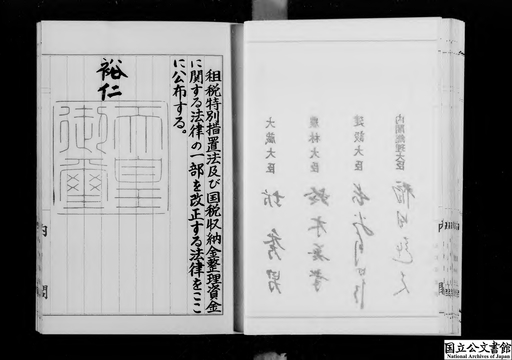 租税特別措置法及び国税収納金整理資金
に関する法律の一部を改正する法律をここ
に公布する。
裕仁
天皇
御璽
内閣
内閣総理大臣 福田赳夫
建設大臣
農林大臣 鈴木善幸
大蔵大臣 坊秀男
内閣
国立公文書館
National Archives of Japan